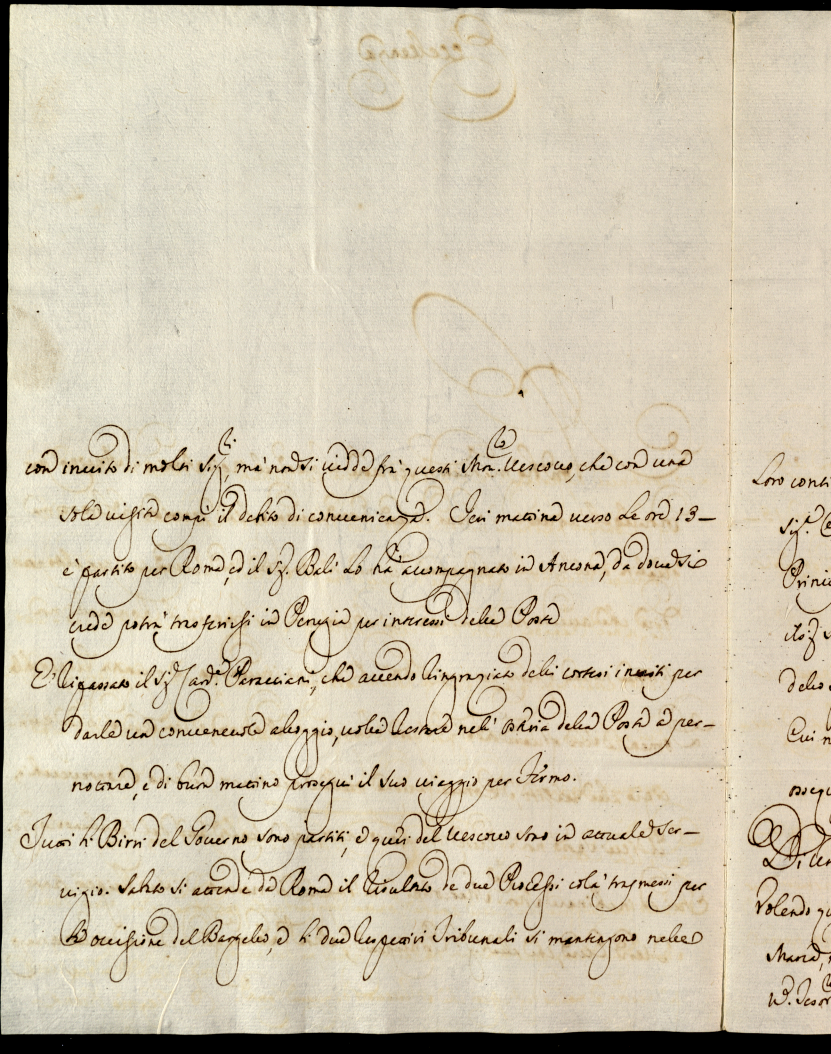 con invito di molti Sig.ri, mà non si vidde frà questi Mon.r Vescovo, che con una
sola visita compì il debito di convenienza. Ieri mattina verso le ore 13
è partito per Roma, ed il Sig.r Balì lo hà accompagnato in Ancona, da dove si
crede potrà trasferirsi in Perugia per interessi della Posta
E' ripassato il Sig.r Card.e Paracciani, che avendo ringraziato delli cortesi inviti per
darle un convenevole alloggio, volle restare nell' osteria della Posta à per-
nottare, e di buon mattino proseguì il suo viaggio per Fermo.
Tutti li Birri del Governo sono partiti, e quei del Vescovo sono in attuale ser-
vizio. Si attende da Roma il risultato de due Processi colà trasmessi per
l'occisione del Bargello, e li due respettivi Tribunali si mantengono nelle
Loro conti
Sig.r
Princi
dello
Cui n
ossequ
Di
Volendo
Maria,